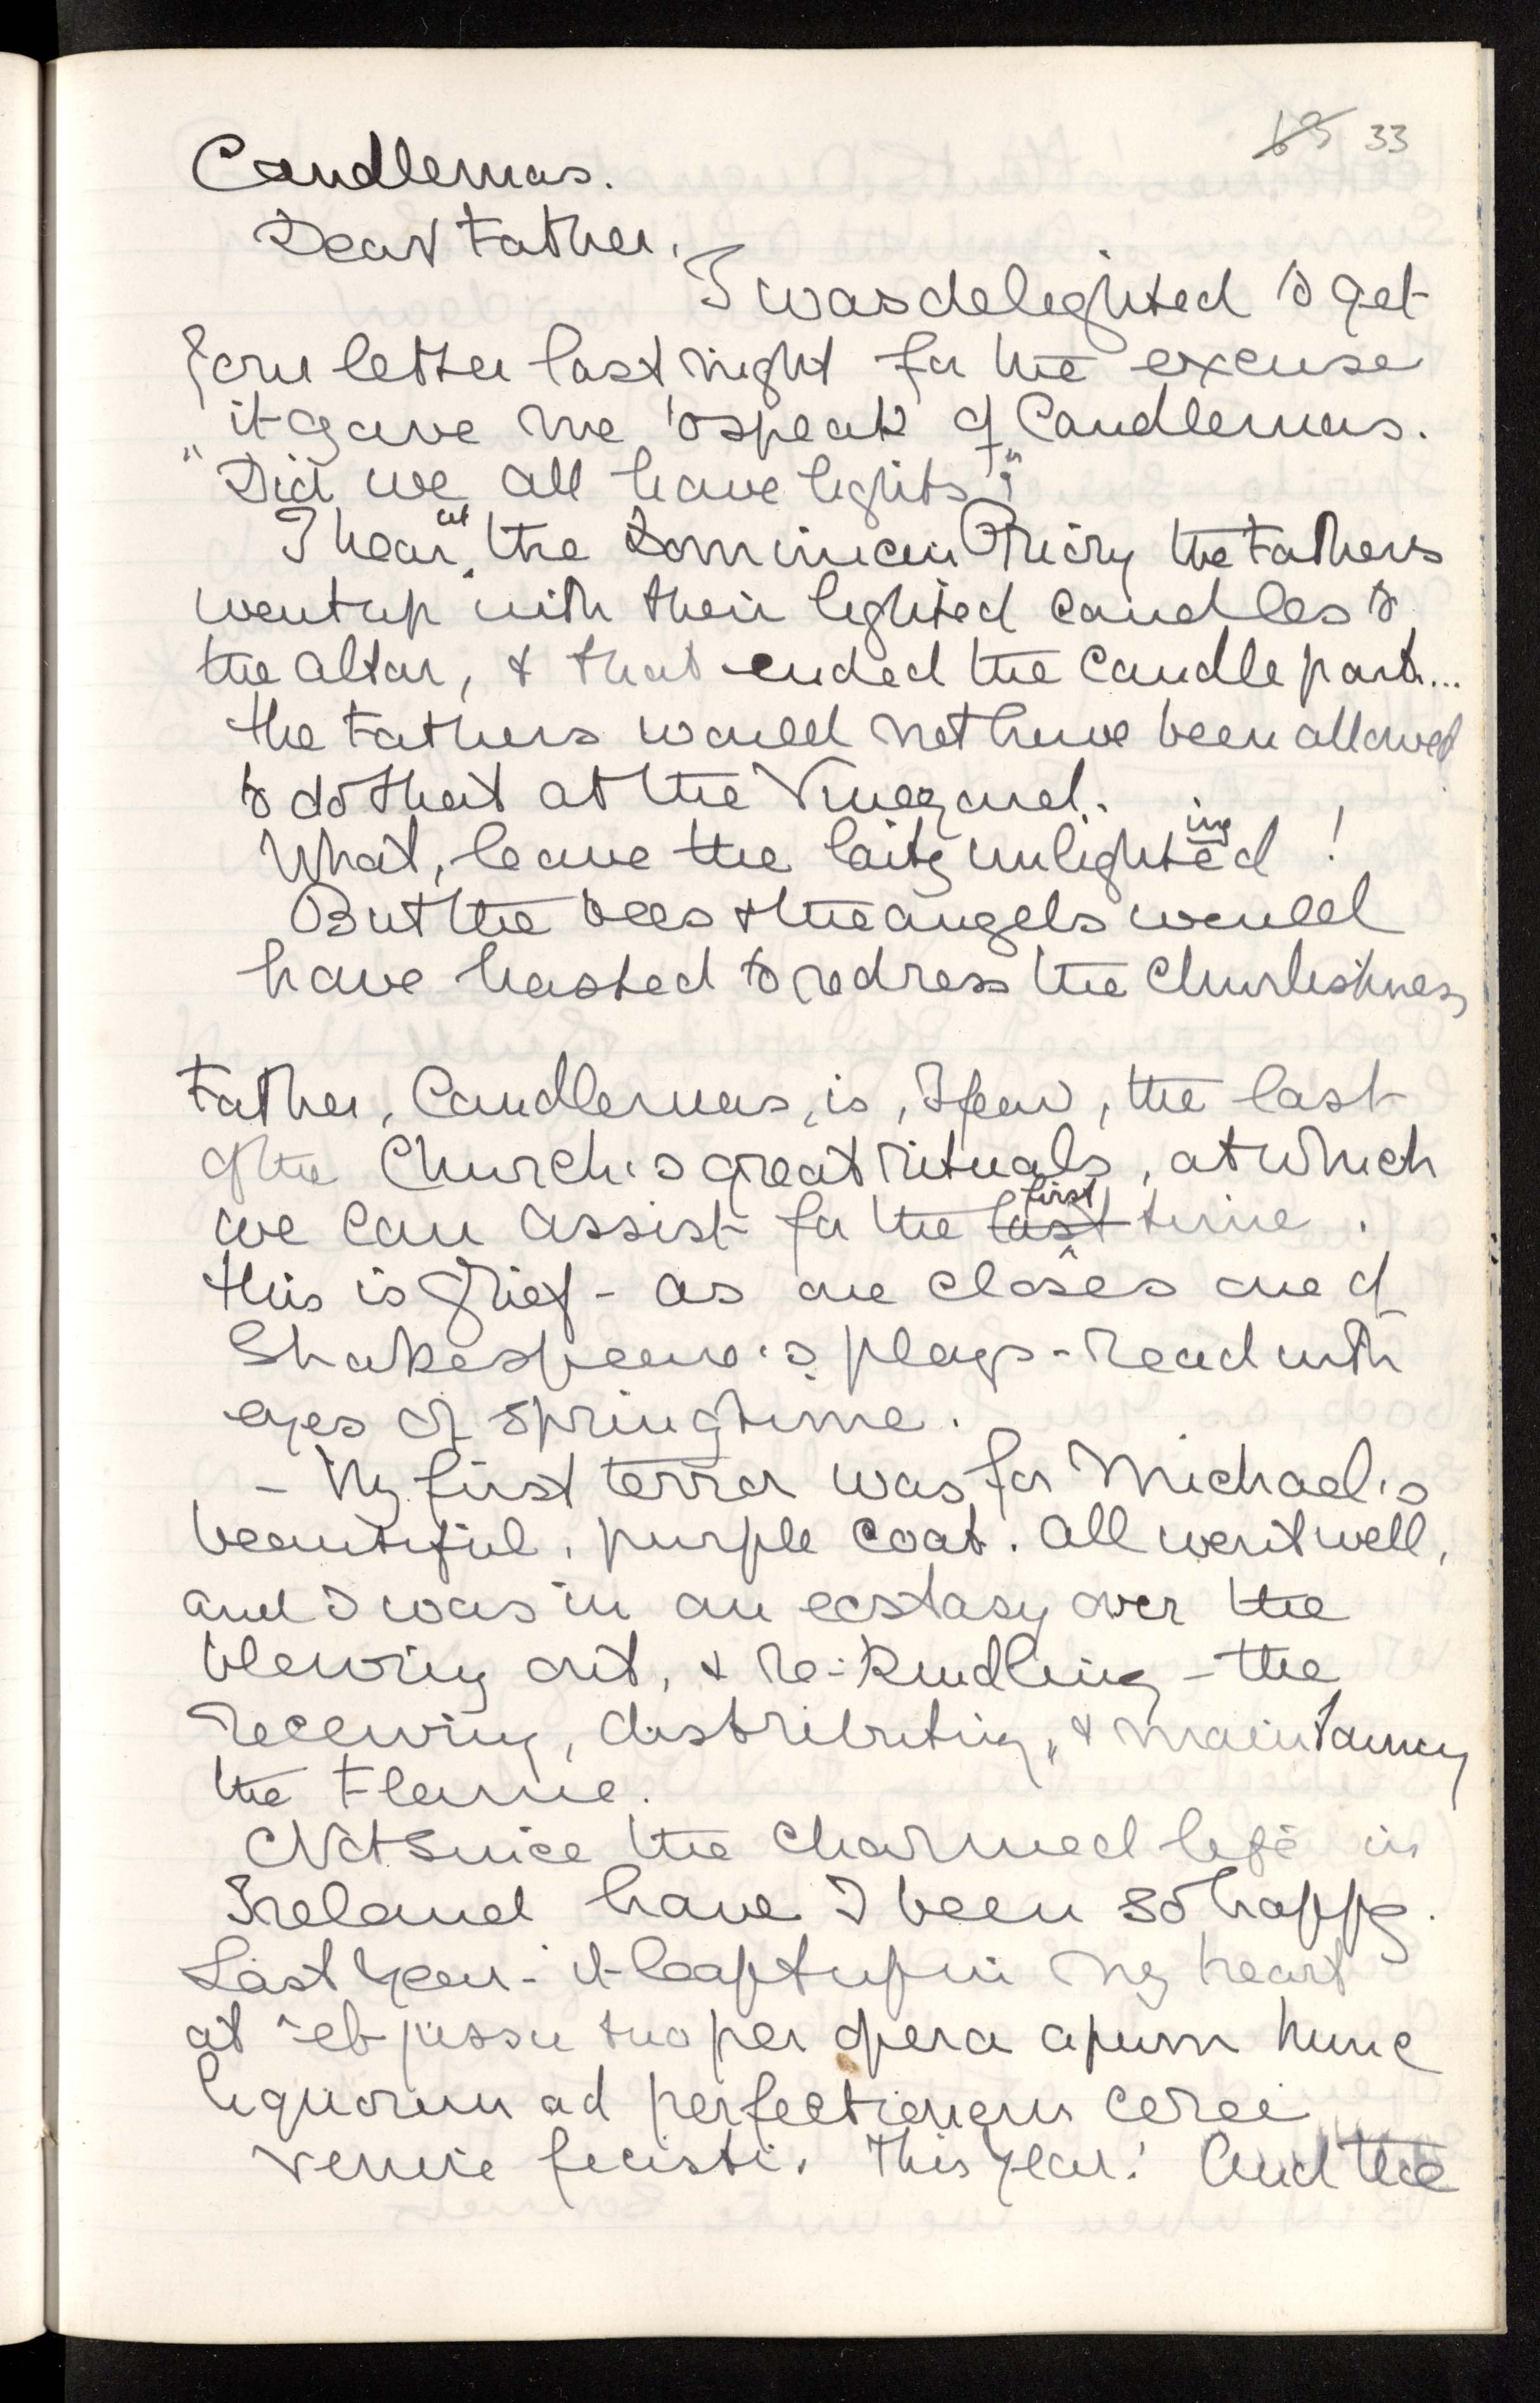 69 33
Candlemas.
Dear Father.
I was delighted to get
your letter last night for the excuse
it gave me to speak of Candlemas.
"Did we all have lights?"
I hear at the Dominican Priory the Fathers
went up with their lighted candles to
the altar, & that ended the candle part...
the Fathers would not have been allowed
to do that at the Vineyard.
What, leave the laity unlighted ing !
But the bees & the angels would
have hasted to redress the churlishness
Father, Candlemas, is, I fear, the last
of the Church's great rituals, at which
we can assist for the last first time.
this is grief - as one closes one of
Shakespeare's plays - read with
eyes of springtime.
- My first terror was for Michael's
beautiful, purple coat. All went well,
and I was in an ecstasy over the
blowing out, & re-kindling - the
receiving, distributing, & maintaining
the Flame.
Not since the charmed life in
Ireland have I been so happy.
Last year - it leapt up in my heart
at - et jussu tuo per opera apum hunc
liquorem ad perfectionem cerei
venire fecisti. This year! And the